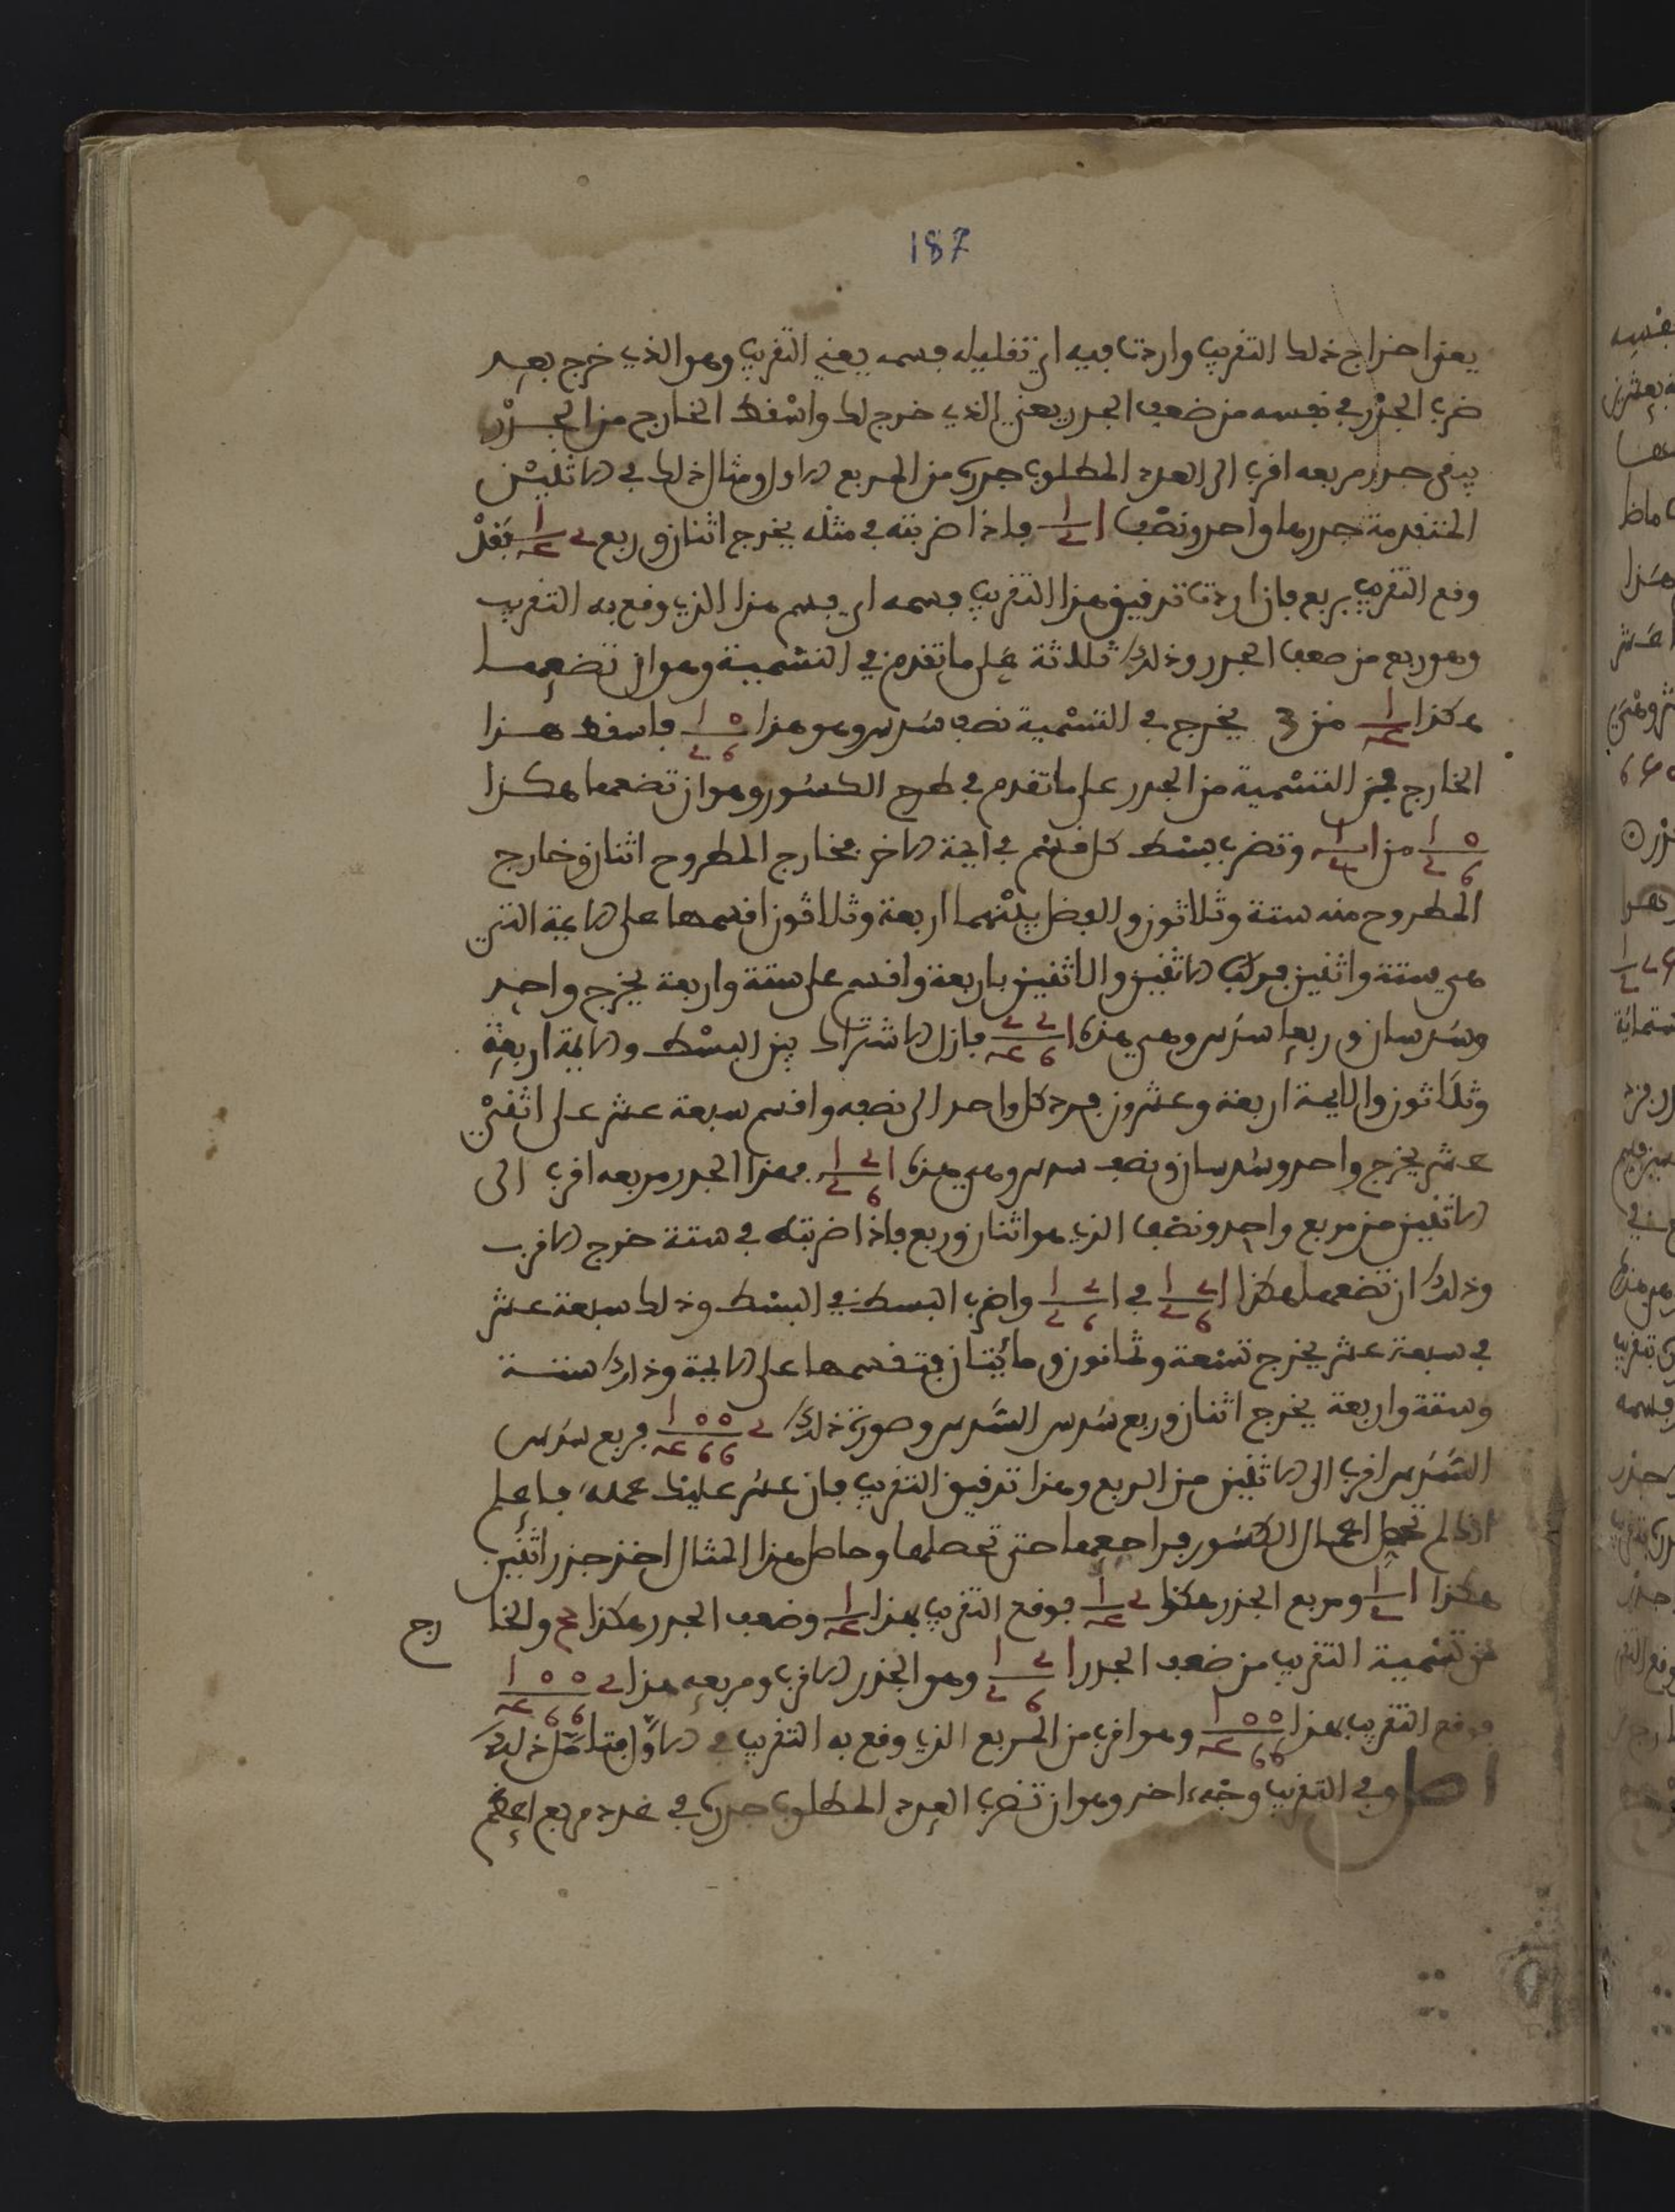 187
يعنى اخراج ذلك التقريب واردت فيه اي تقليله فسمه يعني التقريب وهو الذي خرج بعد
ضرب الجذر في نفسه من ضعف الجذر يعني الذي خرج لك واسقط الخارج من الجذر
يبقى جذر مربعه اقرب الى العدد المطلوب جذره من المربع الاول ومثال ذلك في الاثنين
المتقدمة جذرها واحد ونصف 1 1/2 فاذا ضربته في مثله يخرج اثنان وربع 2 1/4 فقد
وقع التقريب بربع فان اردت تدقيق هذا التقريب فسمه اي فسم هذا الذي وقع به التقريب
وهو ربع من ضعف الجذر وذلك ثلاثة على ما تقدم في التسمية وهو ان تضعها
هكذا 1/4 من 3 يخرج في التسمية نصف سدس وهو هذا 0 1/6 2 فاسقط هذا
الخارج من التسمية من الجذر على ما تقدم في طرح الكسور وهو ان تضعها هكذا
0 1/6 2 من 1 1/2 وتضرب بسط كل قسم في ايمة الاخر فخارج المطروح اثنان وخارج
المطروح منه ستة وثلاثون والفضل بينهما اربعة وثلاثون اقسمها على الايمة التي
هي ستة واثنين فركب الاثنين والاثنين باربعة واقسم على ستة واربعة يخرج واحد
وسدسان وربعا سدس وهي هذه 1 2 2/6 4 فازل الاشتراك بين البسط والايمة اربعة
وثلاثون والايمة اربعة وعشرون فرد كل واحد الى نصفه واقسم سبعة عشر على اثني
عشر يخرج واحد وسدسان ونصف سدس وهي هذه 1 2 1/6 2 فهذا الجذر مربعه اقرب الى
الاثنين من مربع واحد ونصف الذي هو اثنان وربع فاذا ضربته في ستة خرج الاقرب
وذلك ان تضعها هكذا 1 2 1/6 2 في 1 2 1/6 2 واضرب البسط في البسط وذلك سبعة عشر
في سبعة عشر يخرج تسعة وثمانون ومائتان فتقسمها على الايمة وذلك ستة
وستة واربعة يخرج اثنان وربع سدس السدس وصورة ذلك 2 0 0 1/6 6 4 فربع سدس
السدس اقرب الى الاثنين من الربع وهذا تدقيق التقريب فان عسر عليك عمله فاعلم
انك لم تحصل اعمال الكسور فراجعها حتى تحصلها وحاصل هذا المثال اخذ جذر اثنين
هكذا 1 1/2 ومربع الجذر هكذا 2 1/4 فوقع التقريب بهذا 1/4 وضعف الجذر هكذا 3 والخارج
من تسمية التقريب من ضعف الجذر 1 2 1/6 2 وهو الجذر الاقرب ومربعه هذا 2 0 0 1/6 6 4
فوقع التقريب بهذا 0 0 1/6 6 4 وهو اقرب من المربع الذي وقع به التقريب في الاول فتامل ذلك
اصل وفي التقريب وجه اخر وهو ان تضرب العدد المطلوب جذره في عدد مربع اعظم